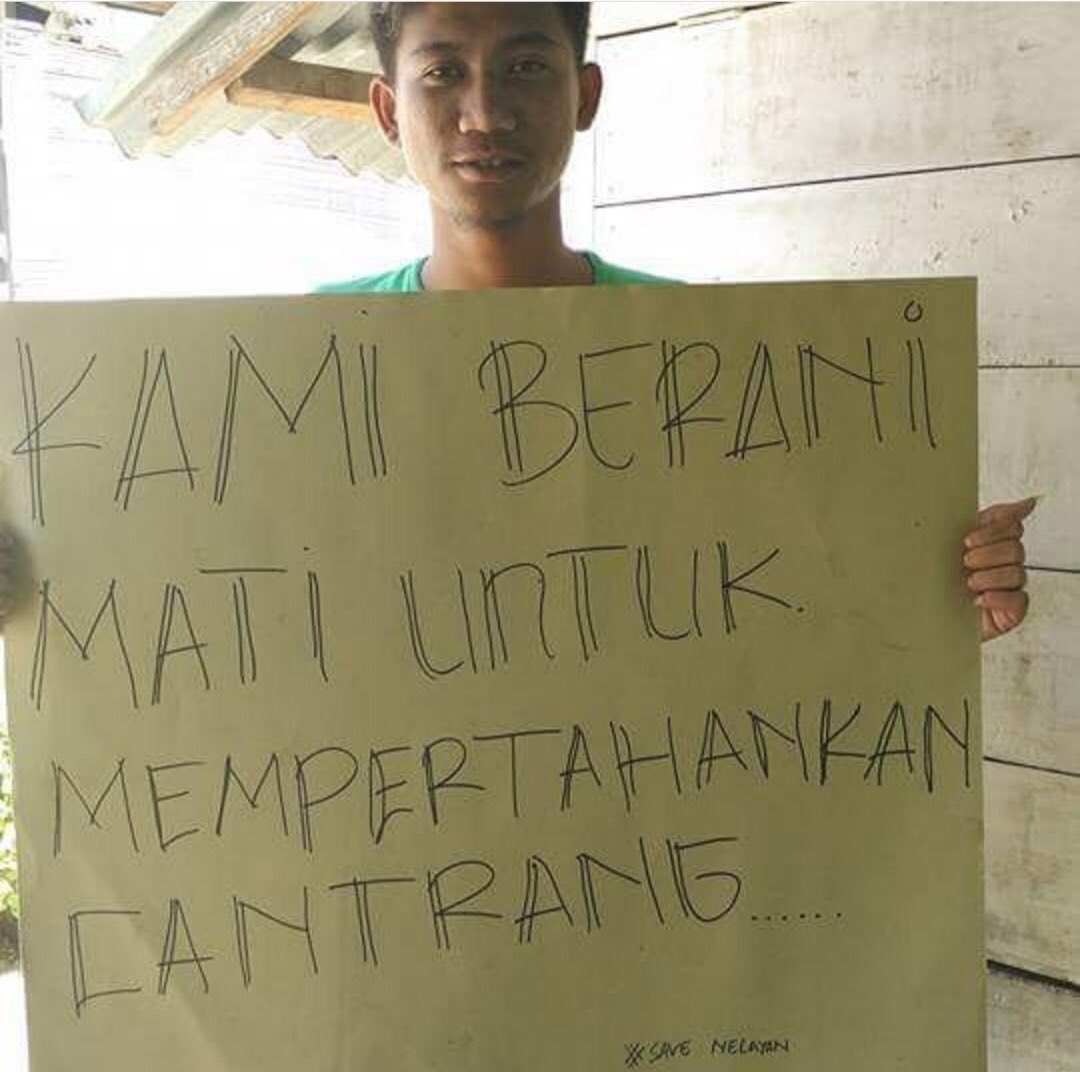 KAMi BERANi
MATi UnTUK.
MEMPERTAHANKAN
CANTRANG......
#SAVE NELAYAN